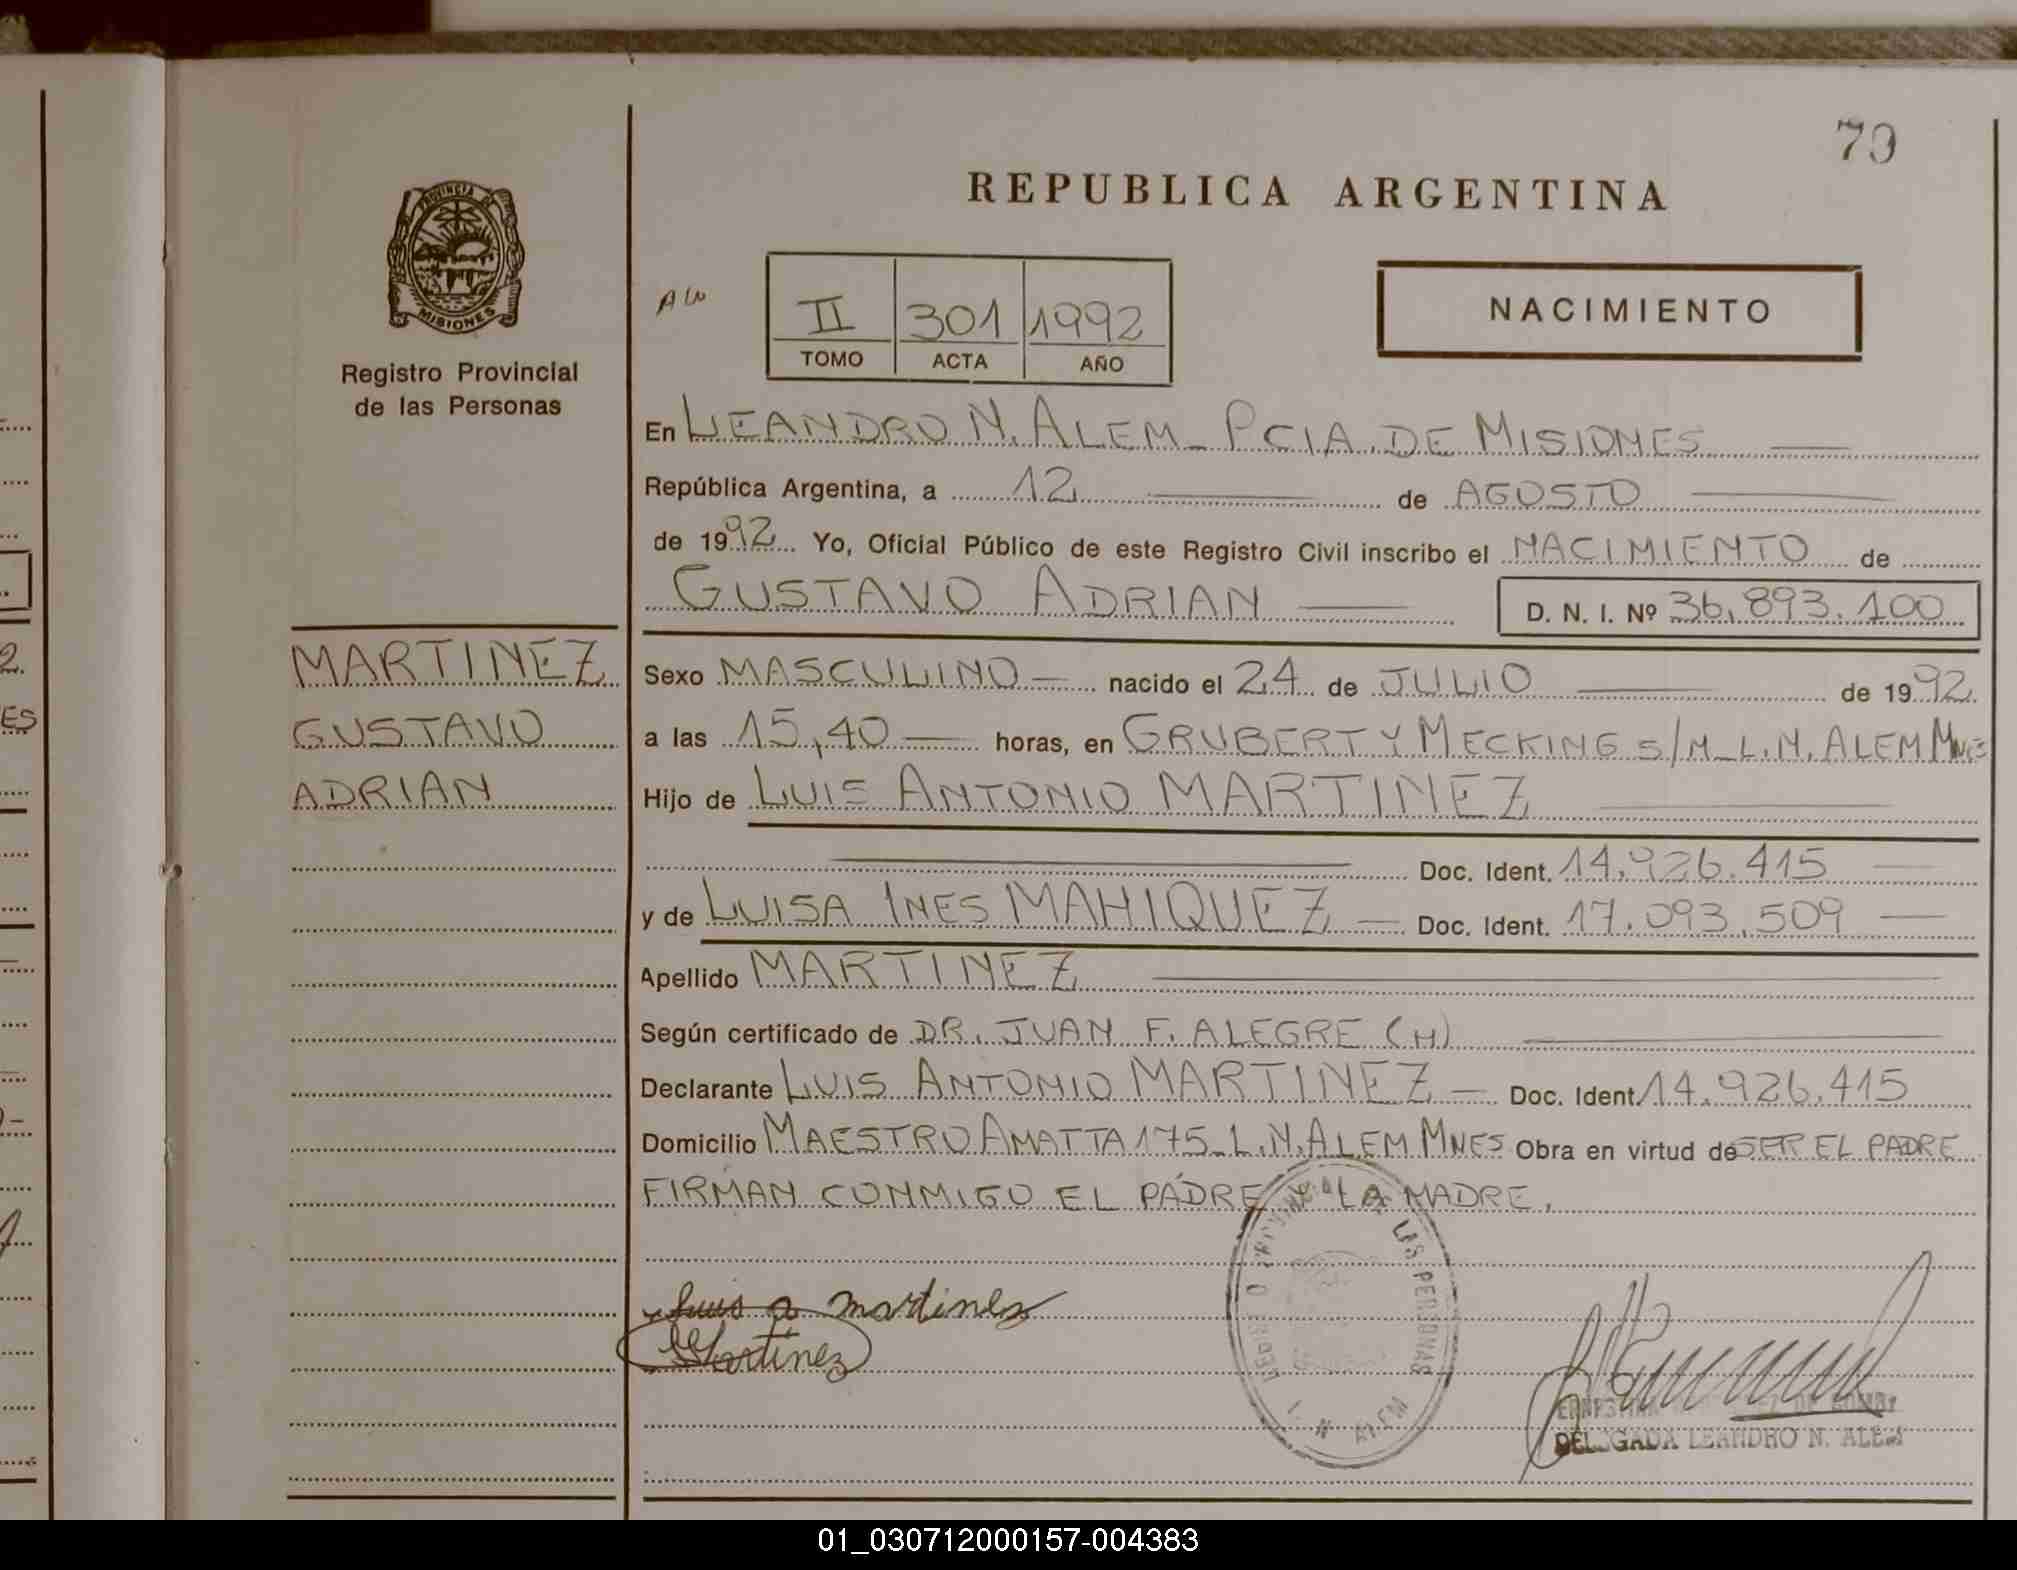 79
PROVINCIA DE
MISIONES
REPUBLICA ARGENTINA
NACIMIENTO
II 301 1992
TOMO ACTA AÑO
Registro Provincial
de las Personas
En LEANDRO N. ALEM - PCIA. DE MISIONES
República Argentina, a 12 de AGOSTO
de 1992 Yo, Oficial Público de este Registro Civil inscribo el NACIMIENTO de
GUSTAVO ADRIAN D. N. I. Nº 36.893.100
MARTINEZ
GUSTAVO
ADRIAN
Sexo MASCULINO nacido el 24 de JULIO de 1992
a las 15,40 horas, en GRUBERT Y MECKING S/N - L.N. ALEM MNES
Hijo de LUIS ANTONIO MARTINEZ
Doc. Ident. 14.926.415
y de LUISA INES MAHIQUEZ Doc. Ident. 17.093.509
Apellido MARTINEZ
Según certificado de DR. JUAN F. ALEGRE (H)
Declarante LUIS ANTONIO MARTINEZ Doc. Ident. 14.926.415
Domicilio MAESTRO AMATTA 175 - L.N. ALEM MNES Obra en virtud de SER EL PADRE
FIRMAN CONMIGO EL PADRE Y LA MADRE.
Luis a martinez
Martinez
LAS PERSONAS
L. N. ALEM
DELEGADA LEANDRO N. ALEM
01_030712000157-004383